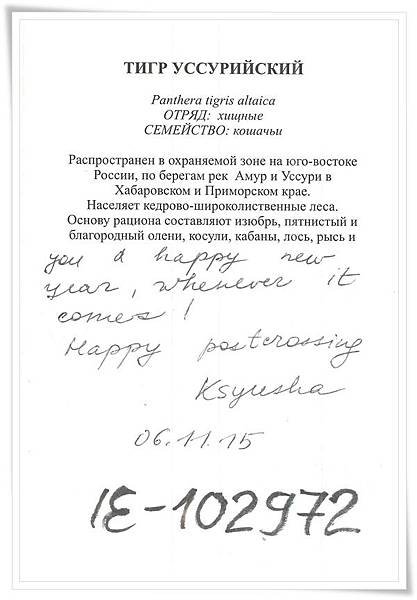 ТИГР УССУРИЙСКИЙ
Panthera tigris altaica
ОТРЯД: хищные
СЕМЕЙСТВО: кошачьи
Распространен в охраняемой зоне на юго-востоке
России, по берегам рек Амур и Уссури в
Хабаровском и Приморском крае.
Населяет кедрово-широколиственные леса.
Основу рациона составляют изюбрь, пятнистый и
благородный олени, косули, кабаны, лось, рысь и
you a happy new
year, whenever it
comes!
Happy postcrossing
Ksyusha
06.11.15
IE-102972